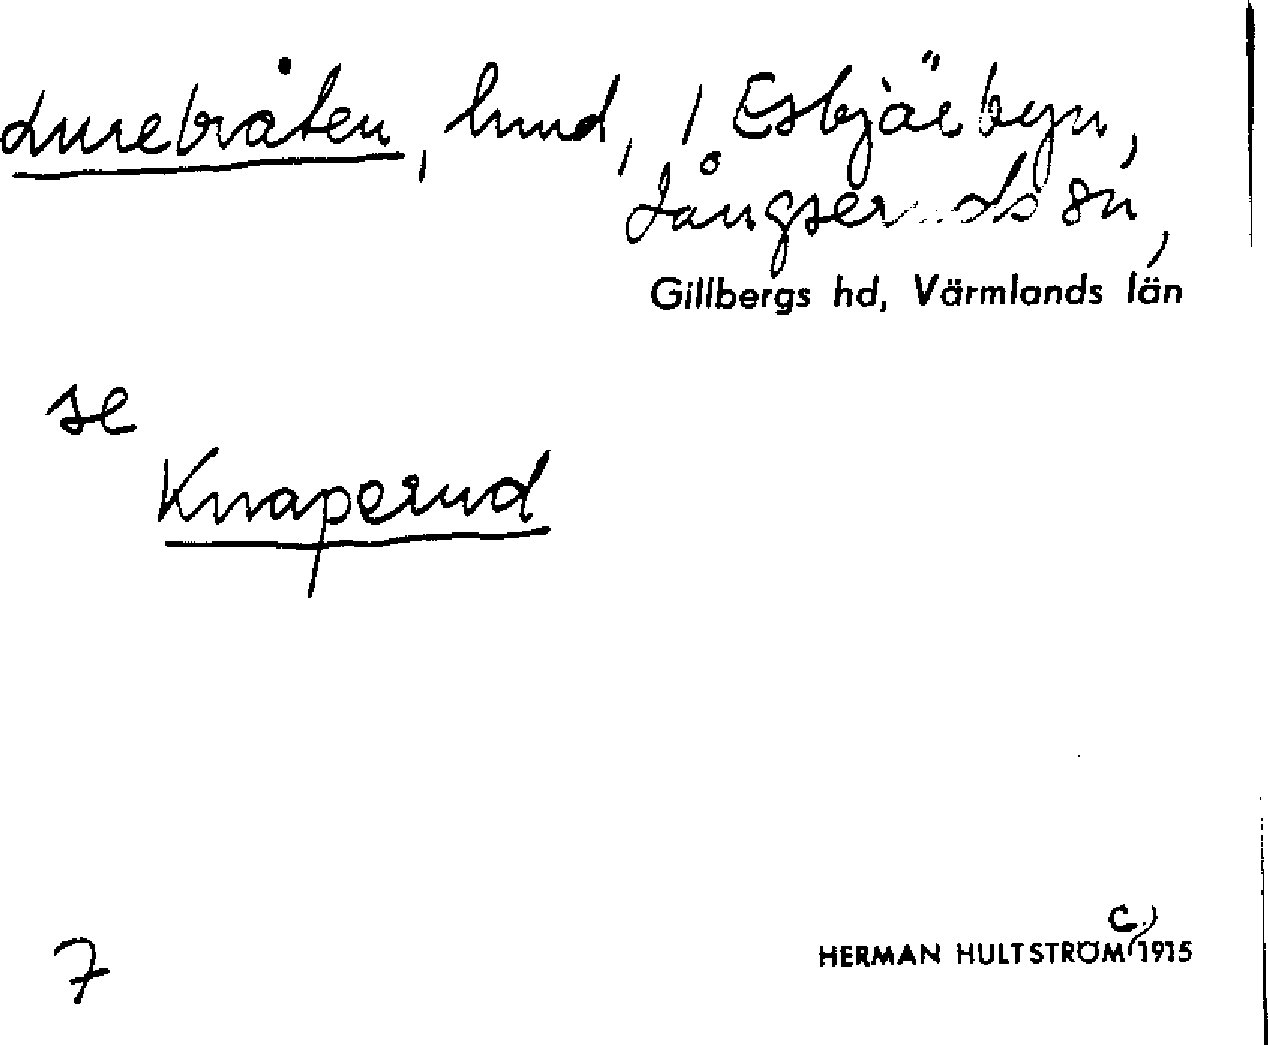 Lurebråten, lund, i Esbjörbyn,
Långseruds sn,
Gillbergs hd, Värmlands län
se
Knaperud
C.)
7
HERMAN HULTSTRÖM 1915